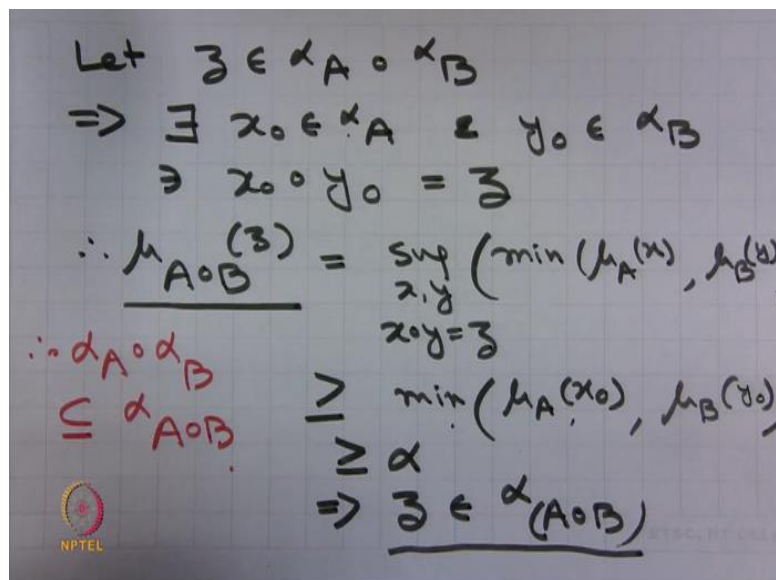 Let z ∈ αA ∘ αB
⇒ ∃ x₀ ∈ αA & y₀ ∈ αB
∋ x₀ ∘ y₀ = z
∴ μA∘B(z) = sup (min (μA(x), μB(y)
x,y
x∘y=z
≥ min (μA(x₀), μB(y₀)
≥ α
⇒ z ∈ α(A∘B)
∴ αA ∘ αB
⊆ αA∘B.
NPTEL